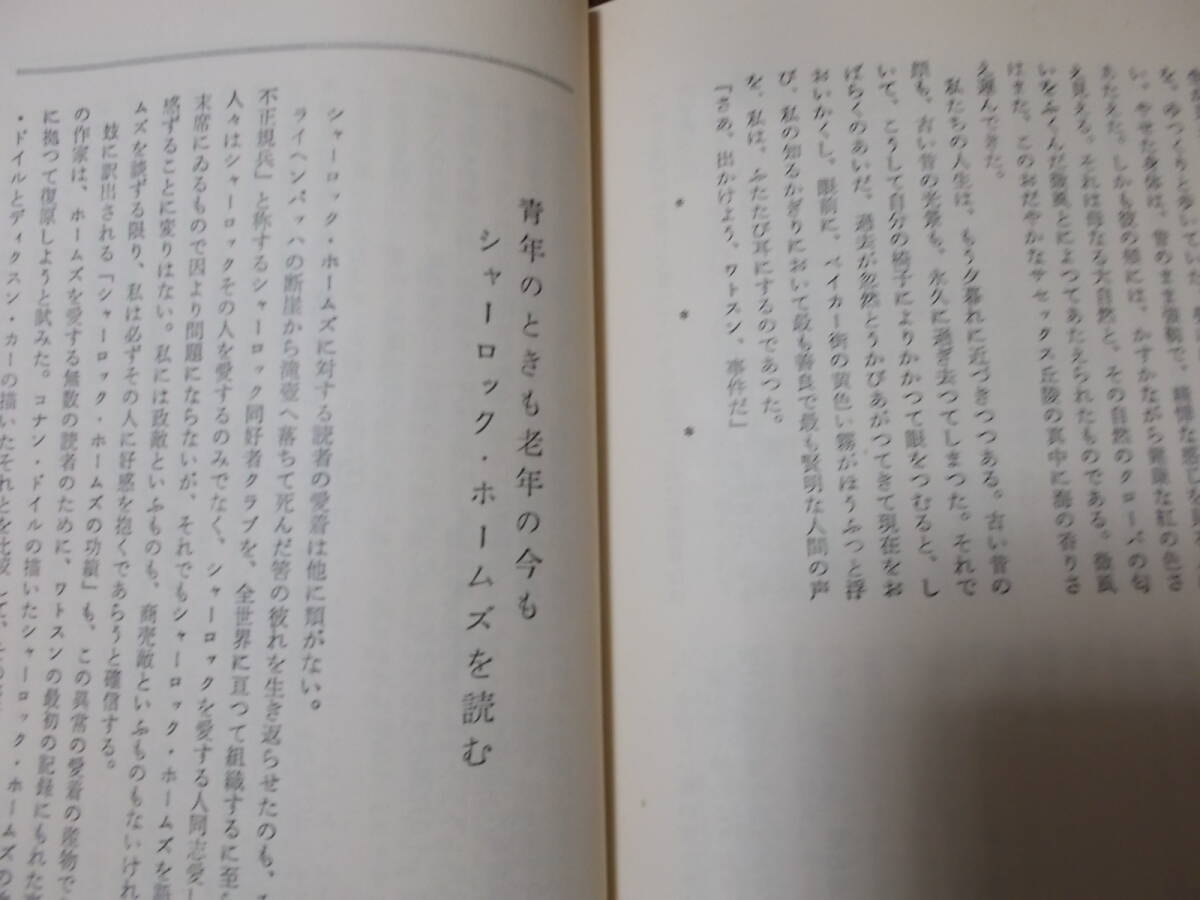 を、ゆつくりと歩いていた。
い。やせた身体は、昔のまま強靭で、
あたえた。しかも彼の頬には、かすかながら健康な紅の色さ
え見える。それは母なる大自然と、その自然のクローバの匂
いをふくんだ微風とによつてあたえられたものである。微風
はまた、このおだやかなサセックス丘陵の真中に海の香りさ
え運んできた。
私たちの人生は、もう夕暮れに近づきつつある。古い昔の
顔も、古い昔の光景も、永久に過ぎ去つてしまつた。それで
いて、こうして自分の椅子によりかかつて眼をつむると、し
ばらくのあいだ、過去が忽然とうかびあがつてきて現在をお
おいかくし、眼前に、ベイカー街の黄色い霧がほうふつと浮
び、私の知るかぎりにおいて最も善良で最も賢明な人間の声
を、私は、ふたたび耳にするのであつた。
『さあ、出かけよう、ワトスン、事件だ』
＊　＊　＊
青年のときも老年の今も
シャーロック・ホームズを読む
シャーロック・ホームズに対する読者の愛着は他に類がない。
ライヘンバッハの断崖から滝壺へ落ちて死んだ筈の彼れを生き返らせたのも、
不正規兵」と称するシャーロック同好者クラブを、全世界に亙つて組織するに至
人々はシャーロックその人を愛するのみでなく、シャーロックを愛する人同志愛し
末席にゐるもので因より問題にならないが、それでもシャーロック・ホームズを
感ずることに変りはない。私には政敵といふものも、商売敵といふものもないけれ
ムズを談ずる限り、私は必ずその人に好感を抱くであらうと確信する。
玆に訳出される「シャーロック・ホームズの功績」も、この異常の愛着の産物で
の作家は、ホームズを愛する無数の読者のために、ワトスンの最初の記録にもれた
に拠つて復原しようと試みた。コナン・ドイルの描いたシャーロック・ホームズの
・ドイルとディクスン・カーの描いたそれとを比較して、